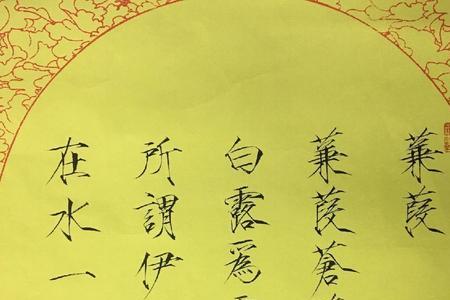 蒹葭
蒹葭蒼
白露爲
所謂伊
在水一